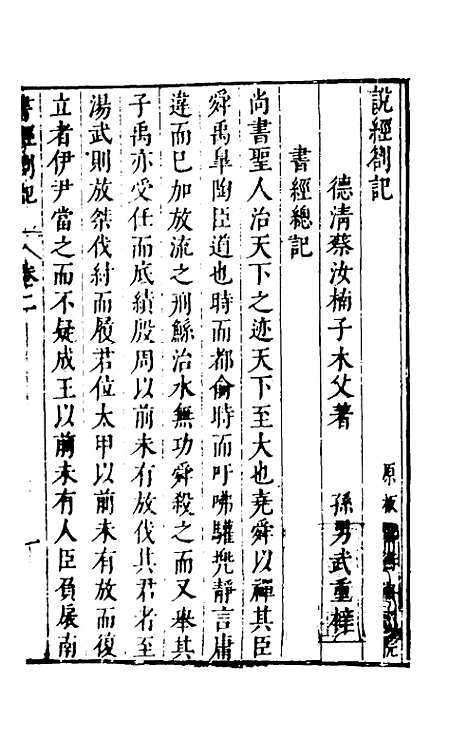 說經劄記
德清蔡汝楠子木父著　孫男武重梓
原板
書經總記
尚書聖人治天下之迹天下至大也堯舜以禪其臣
舜禹臯陶臣道也時而都俞時而吁咈驩兠靜言庸
違而已加放流之刑鯀治水無功舜殺之而又舉其
子禹亦受任而底績殷周以前未有放伐其君者至
湯武則放桀伐紂而履君位太甲以前未有放而復
立者伊尹當之而不疑成王以前未有人臣負扆南
書經劄記　卷二　一